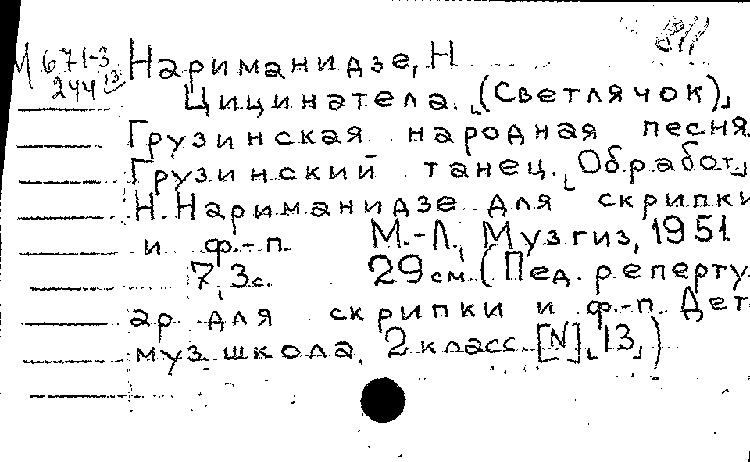 М 671-3 Нариманидзе, Н
244
Цицинатела. (Светлячок)
Грузинская народная песня
Грузинский танец. Обработ.
Н. Нариманидзе для скрипки
и ф.-п. М.-Л., Музгиз, 1951
7, 3 с. 29 см. (Пед. реперту
ар для скрипки и ф.-п. Дет
муз. школа. 2 класс. [N] 13)